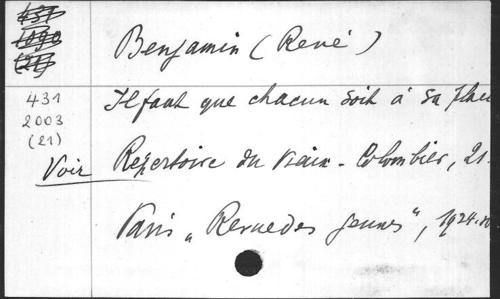 Benjamin (René)
431
2003
(21)
Il faut que chacun soit à sa place
Voir Répertoire du Vieux-Colombier, 21.
Paris „Revue des jeunes", 1924.